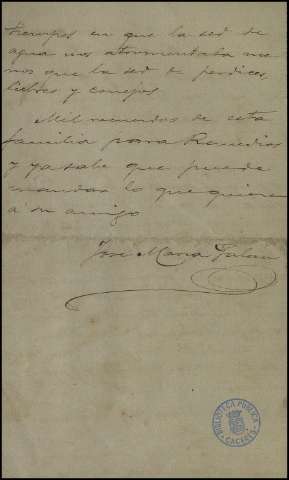 tiempos en que la sed de
agua nos atormentaba me
nos que la sed de perdices,
liebres y conejos.
Mil recuerdos de esta
familia para Remedios
y ya sabe que puede
mandar lo que quiera
á su amigo
José María Gabriel
BIBLIOTECA PUBLICA
CACERES